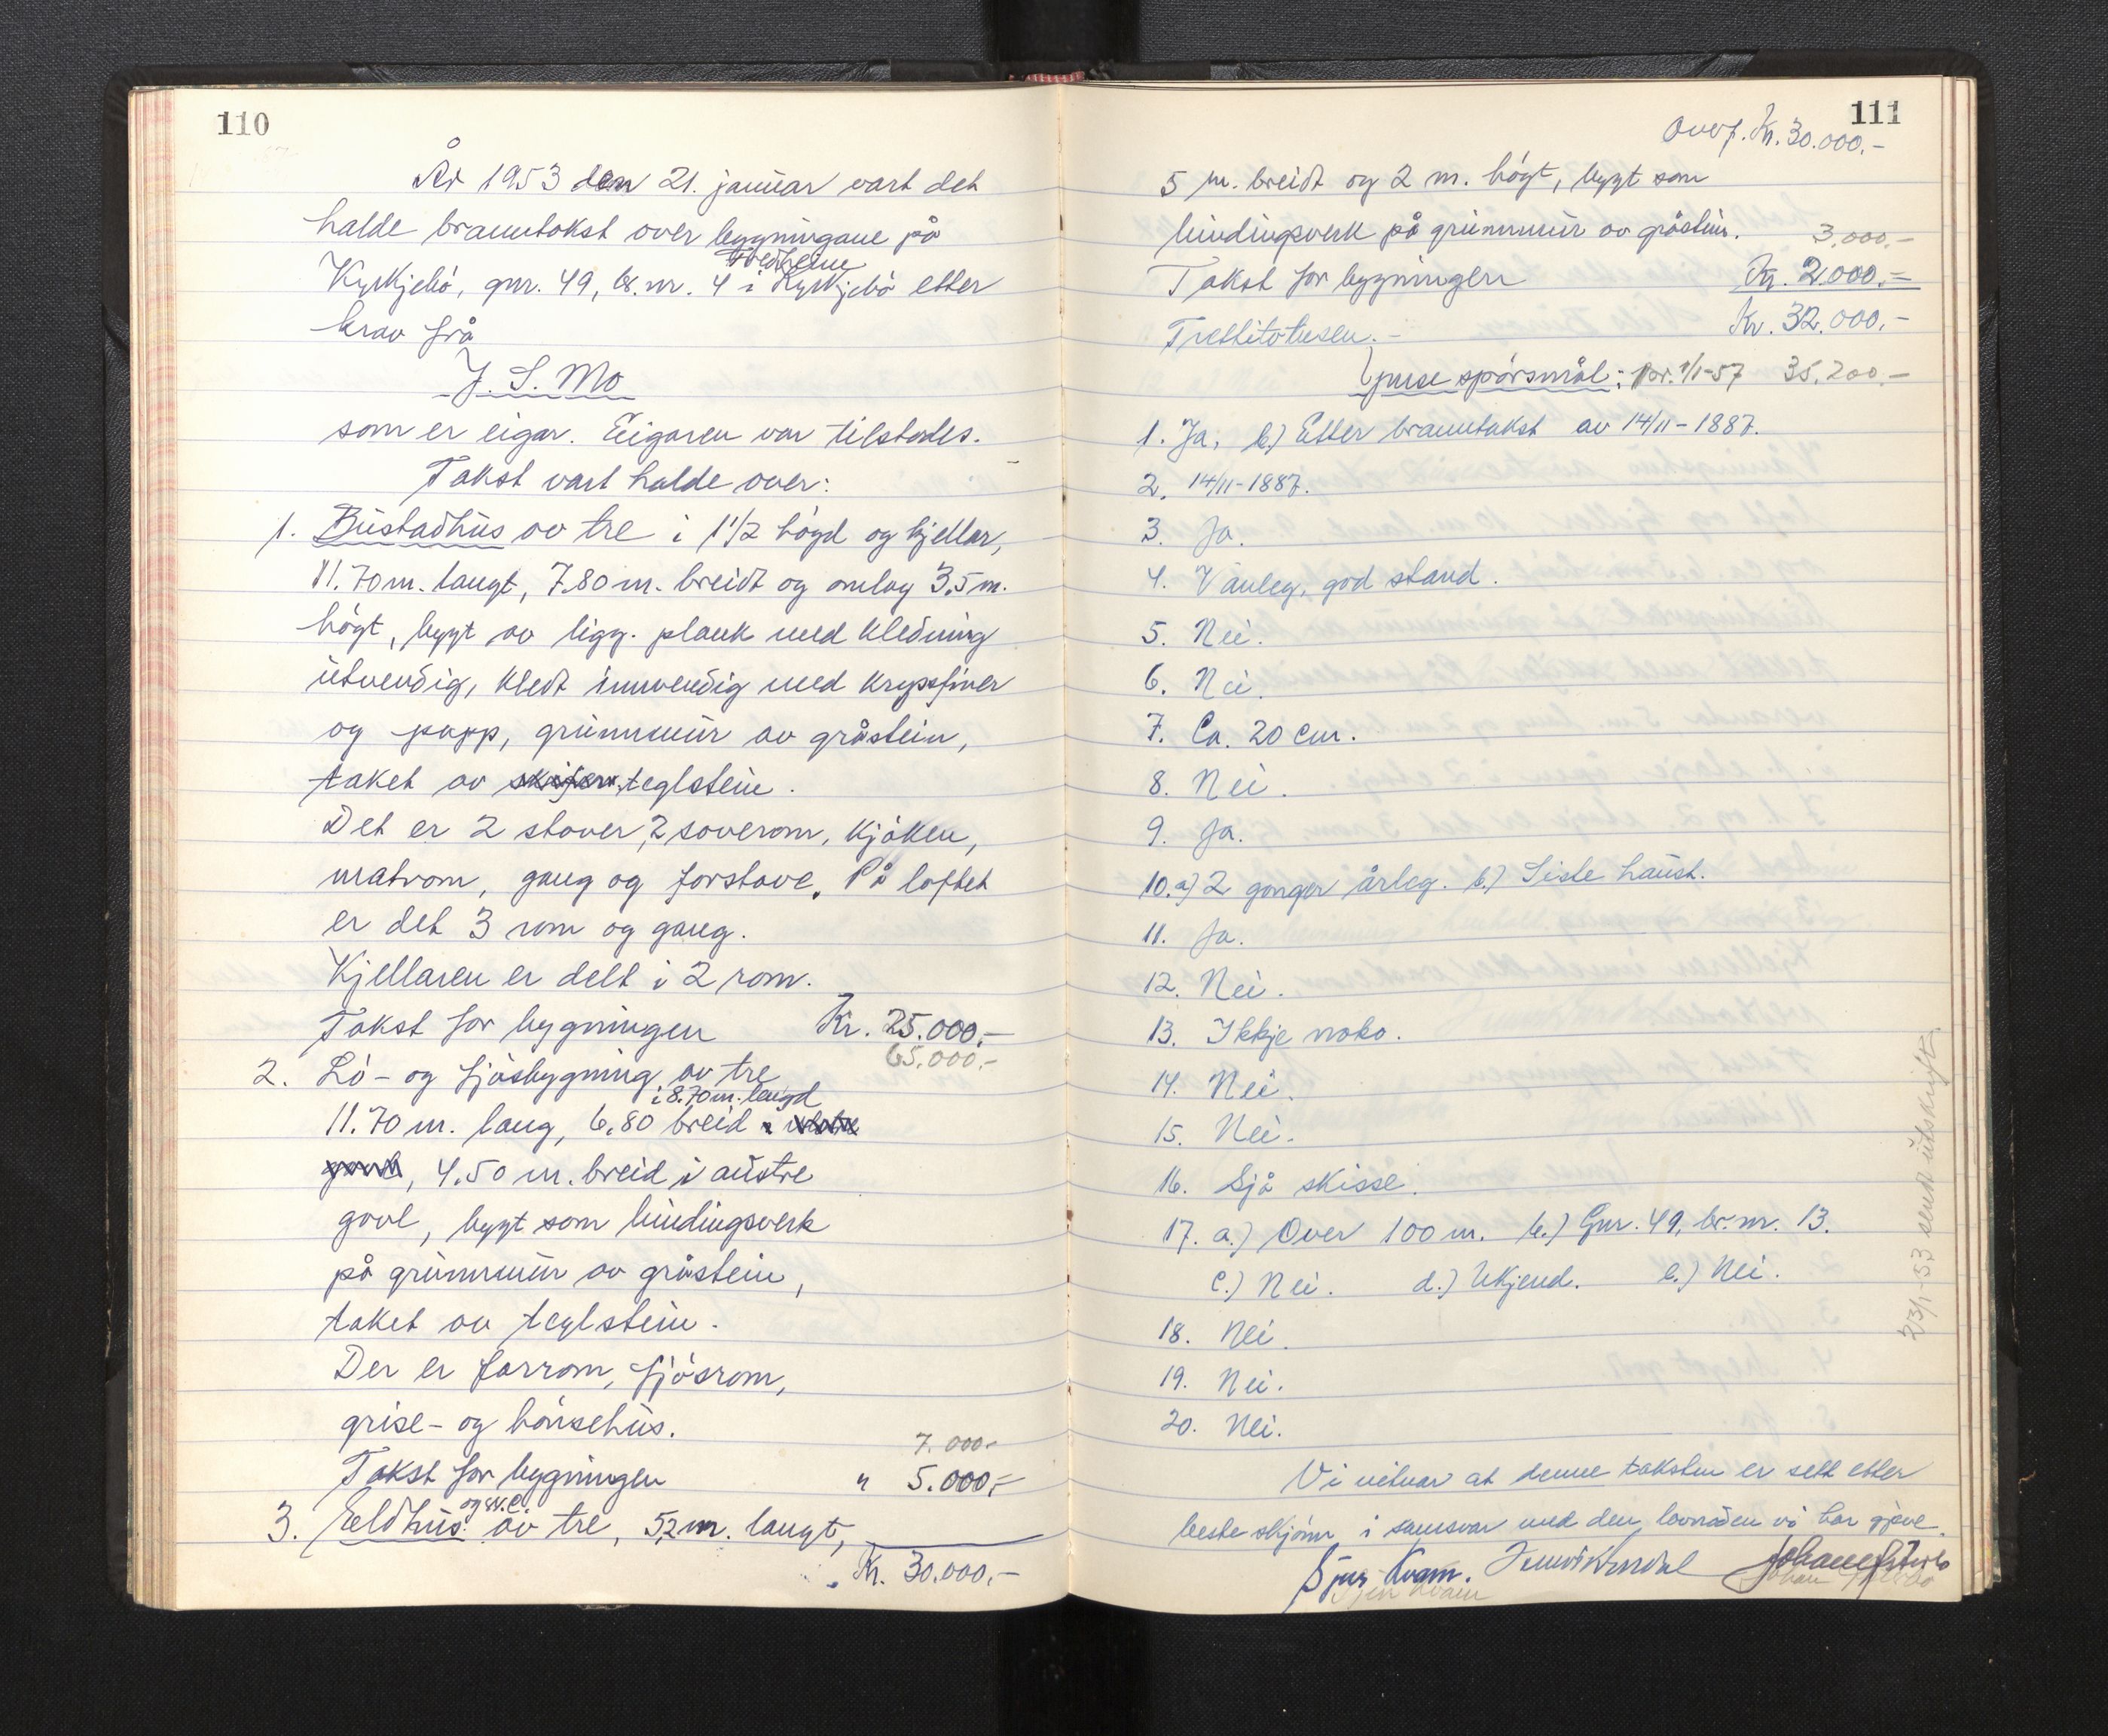 110
År 1953 den 21. januar vart det
halde branntakst over bygningane på
Tredheim
Kyrkjebø, gnr. 49, br.nr. 4 i Kyrkjebø etter
krav frå
J. S. Mo
som er eigar. Eigaren var tilstades.
Takst vart halde over:
1. Bustadhus av tre i 1 1/2 høgd og kjellar,
11.70 m. langt, 7.80 m. breidt og omlag 3.5 m.
høgt, bygt av ligg. plank med kledning
utvendig, kledt innvendig med kryssfiner
og papp, grunnmur av gråstein,
taket av skifer teglstein.
Det er 2 stover, 2 soverom, kjøken,
matrom, gang og forstove. På loftet
er det 3 rom og gang.
Kjellaren er delt i 2 rom.
Takst for bygningen Kr. 25.000,-
65.000,-
2. Lø- og fjøsbygning av tre
i 8.70 m. lengd
11.70 m. lang, 6.80 breid i vestre
gavl, 4.50 m. breid i austre
gavl, bygt som bindingsverk
på grunnmur av gråstein,
taket av teglstein.
Der er forrom, fjøsrom,
grise- og hønsehus.
7.000-
Takst for bygningen " 5.000,-
og sv.
3. Eldhus av tre, 5,2 m. langt,
Kr. 30.000,-
111
Overf. Kr. 30.000,-
5 m. breidt og 2 m. høgt, bygt som
bindingsverk på grunnmur av gråstein.
3.000,-
Takst for bygningen Kr. 2.000,-
Trettitotusen.- Kr. 32.000,-
Ymse spørsmål: pr. 1/1-57 35.200,-
1. Ja, b.) Etter branntakst av 14/11-1887.
2. 14/11-1887.
3. Ja.
4. Vanleg, god stand.
5. Nei.
6. Nei.
7. Ca. 20 cm.
8. Nei.
9. Ja.
10. a) 2 gonger årleg. b.) Siste haust.
11. Ja.
12. Nei.
13. Ikkje noko.
14. Nei.
15. Nei.
16. Sjå skisse.
17. a.) Over 100 m. b.) Gnr. 49, br.nr. 13.
c.) Nei. d.) Ukjend. e.) Nei.
18. Nei.
19. Nei.
20. Nei.
Vi vitnar at denne taksten er sett etter
beste skjønn i samsvar med den lovnaden vi har gjeve.
Sjur Kvam.
Sjur Kvam
23/1-53 sendt utskrift.